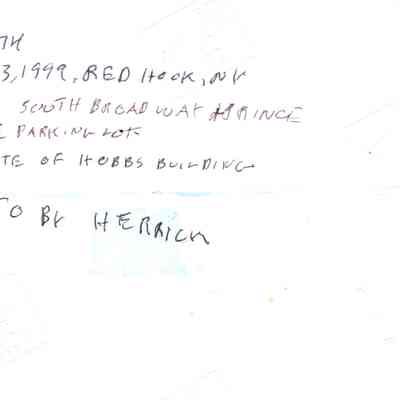 TH
3, 1999, RED HOOK, NY
SOUTH BROADWAY & PRINCE
E PARKING LOT
TE OF HOBBS BUILDING
TO BY HERRICK